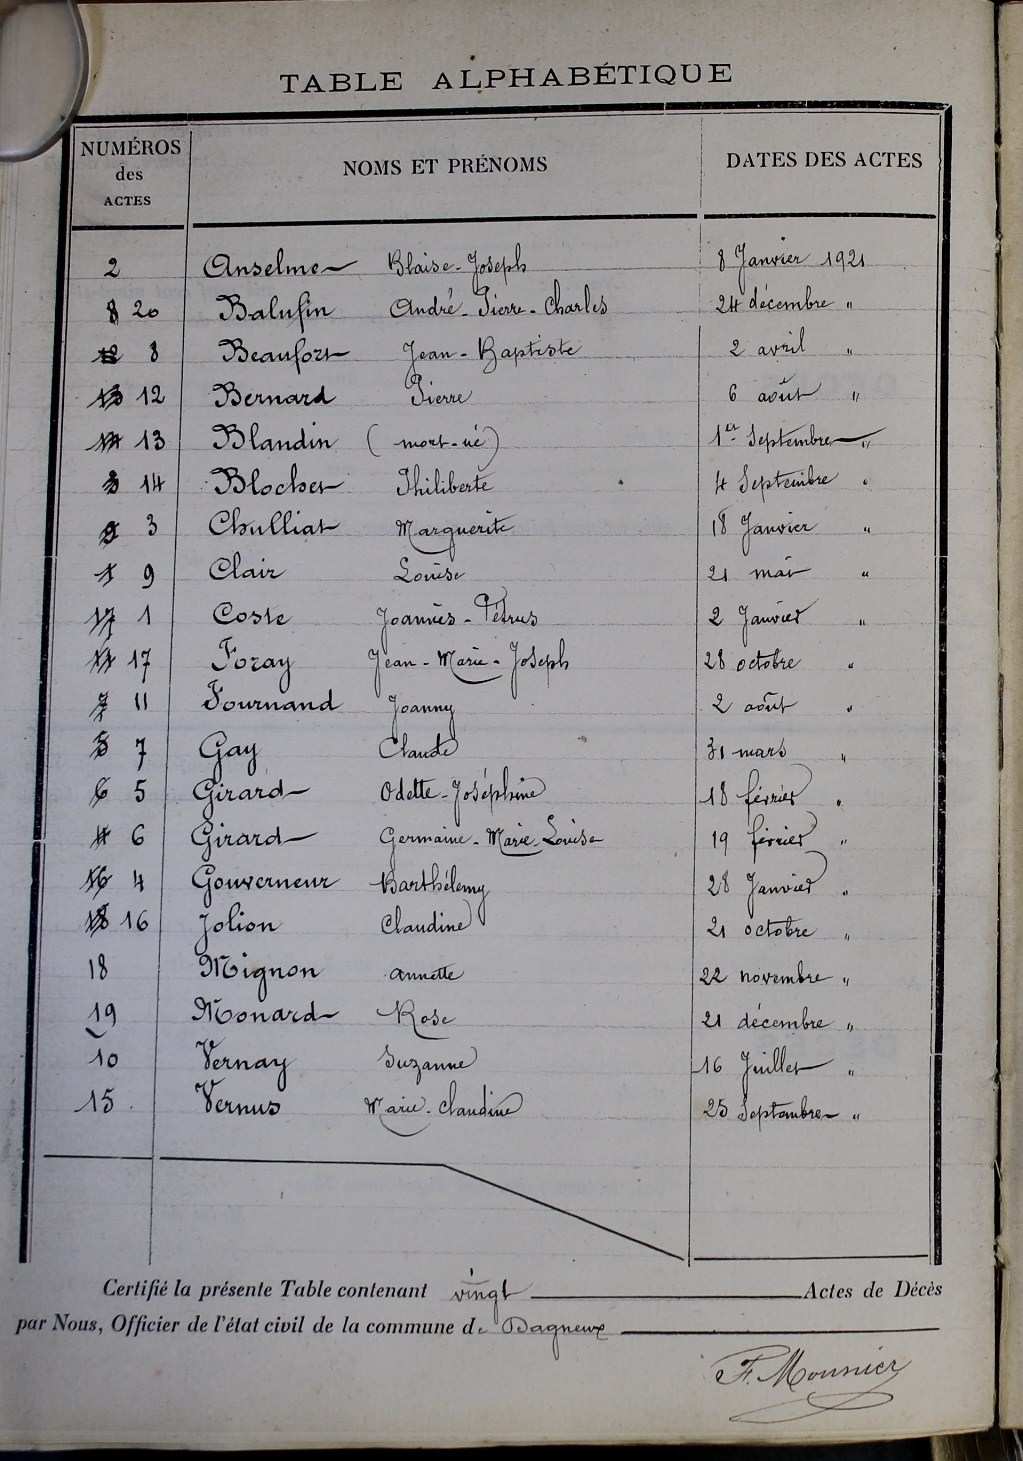 TABLE ALPHABÉTIQUE
NUMÉROS des ACTES NOMS ET PRÉNOMS DATES DES ACTES
2 Anselme Blaise-Joseph 8 Janvier 1921
8 20 Balufin André-Pierre-Charles 24 décembre "
8 Beaufort Jean-Baptiste 2 avril "
13 12 Bernard Pierre 6 août "
14 13 Blandin (mort-né) 1er Septembre "
3 14 Blochet Philiberte 4 Septembre "
9 3 Chulliat Marguerite 18 Janvier "
1 9 Clair Louise 21 mai "
17 1 Coste Joannès-Pétrus 2 Janvier "
11 17 Foray Jean-Marie-Joseph 28 octobre "
7 11 Fournand Joanny 2 août "
5 7 Gay Claude 31 mars "
6 5 Girard Odette-Joséphine 18 février "
4 6 Girard Germaine-Marie-Louise 19 février "
16 4 Gouverneur Barthélemy 28 Janvier "
18 16 Jolion Claudine 21 octobre "
18 Mignon Annette 22 novembre "
19 Monard Rose 21 décembre "
10 Vernay Suzanne 16 Juillet "
15 Vernus Marie-Claudine 25 Septembre "
Certifié la présente Table contenant vingt Actes de Décès
par Nous, Officier de l'état civil de la commune de Dagneux
F. Mounier